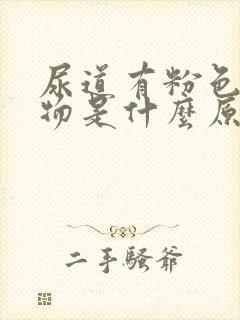 尿道有粉色
物是什麼原
二手騷爺